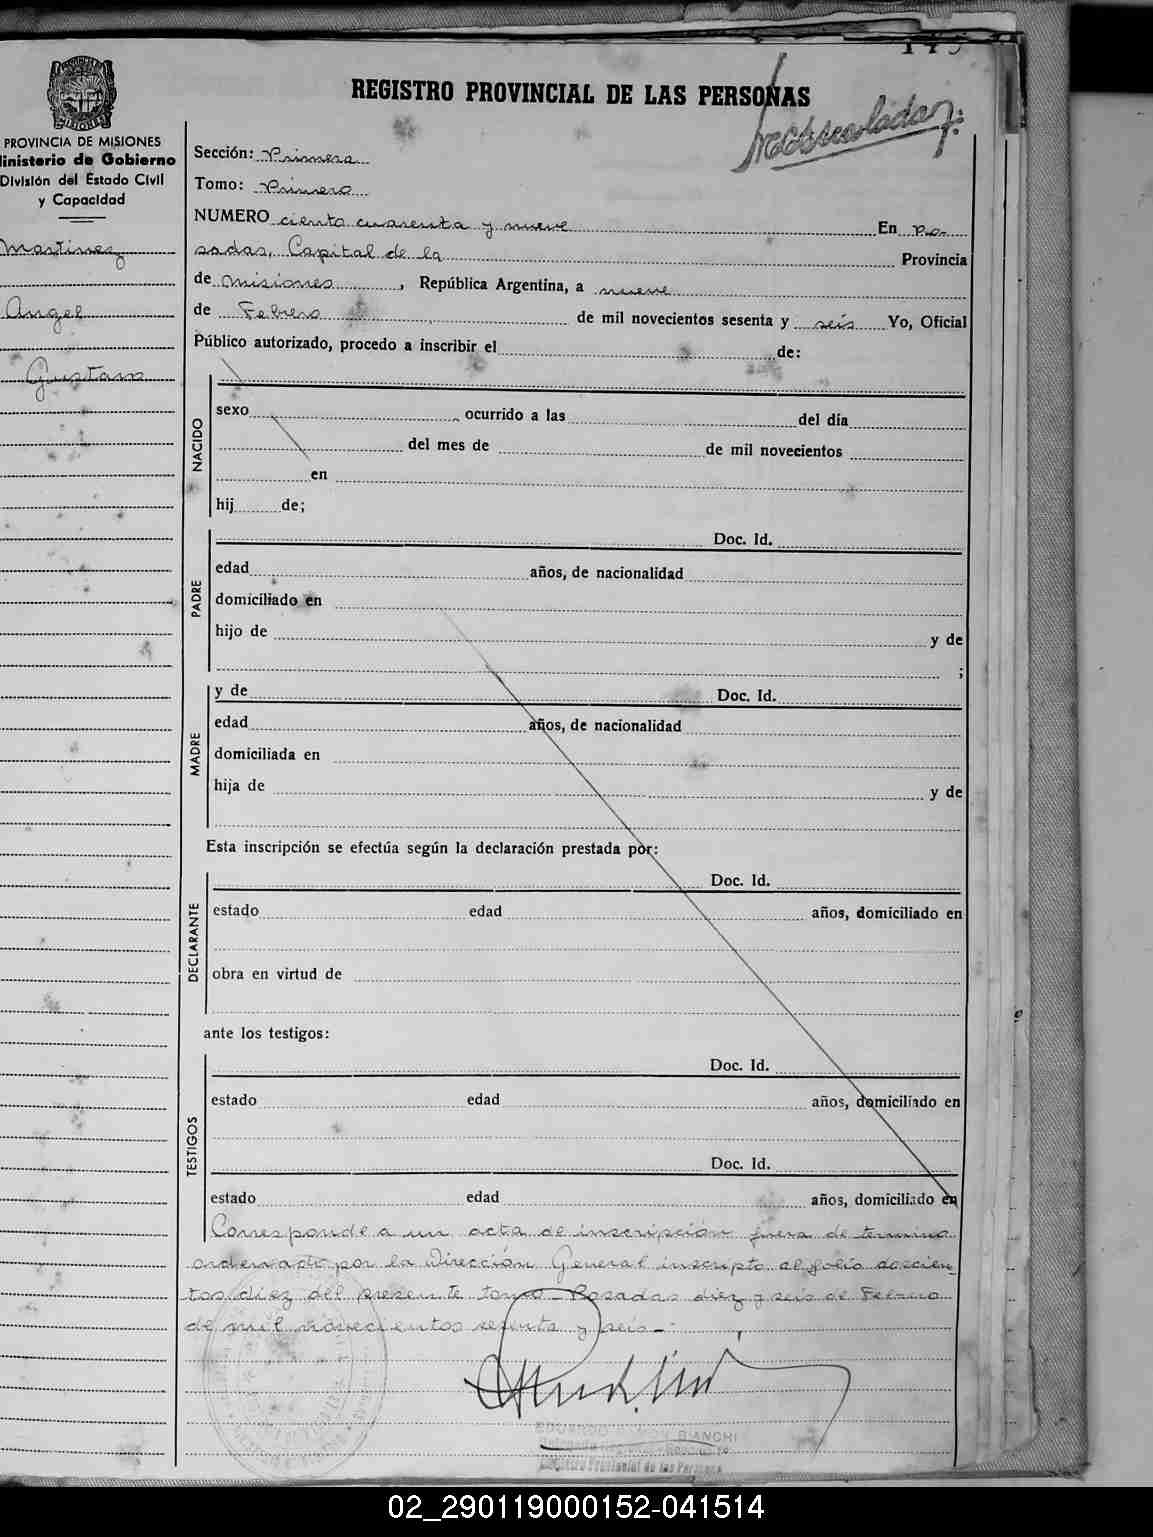 149
REGISTRO PROVINCIAL DE LAS PERSONAS
PROVINCIA DE MISIONES
Ministerio de Gobierno
División del Estado Civil
y Capacidad
Martinez
Angel
Gustavo
Sección: Primera
Tomo: Primero
NUMERO ciento cuarenta y nueve En Po-
sadas, Capital de la Provincia
de Misiones, República Argentina, a nueve
de Febrero de mil novecientos sesenta y seis Yo, Oficial
Público autorizado, procedo a inscribir el de:
NACIDO
sexo ocurrido a las del día
del mes de de mil novecientos
en
hij de;
PADRE
Doc. Id.
edad años, de nacionalidad
domiciliado en
hijo de y de
;
MADRE
y de Doc. Id.
edad años, de nacionalidad
domiciliada en
hija de y de
Esta inscripción se efectúa según la declaración prestada por:
DECLARANTE
Doc. Id.
estado edad años, domiciliado en
obra en virtud de
ante los testigos:
TESTIGOS
Doc. Id.
estado edad años, domiciliado en
Doc. Id.
estado edad años, domiciliado en
Corresponde a un acta de inscripción fuera de termino
ordenado por la Dirección General inscripto al folio doscien-
tos diez del presente tomo - Posadas diez y seis de Febrero
de mil novecientos sesenta y seis -
EDUARDO BIANCHI
Registro Provincial de las Personas
02_290119000152-041514